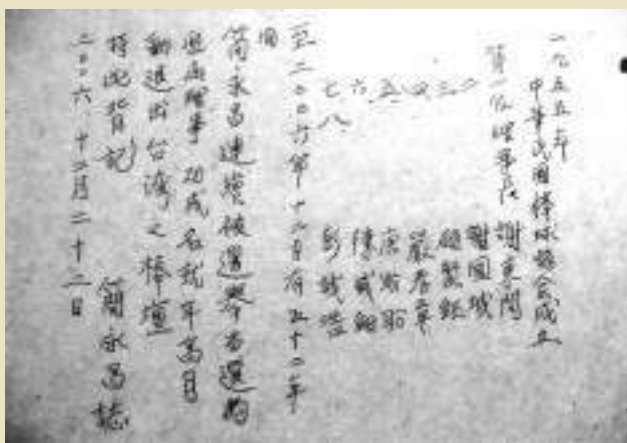 一九五五年
中華民國棒球協會成立
第一任理事長 謝東閔
二 謝國城
三
四 嚴孝章
五 唐盼盼
六 陳盛沺
七八 彭誠浩
至二〇〇六年十二月有五十二年
簡永昌連續被選舉當選為
理事 功成名就年高自
動退出台灣之棒壇
特此背記
簡永昌誌
二〇〇六、十二月二十二日